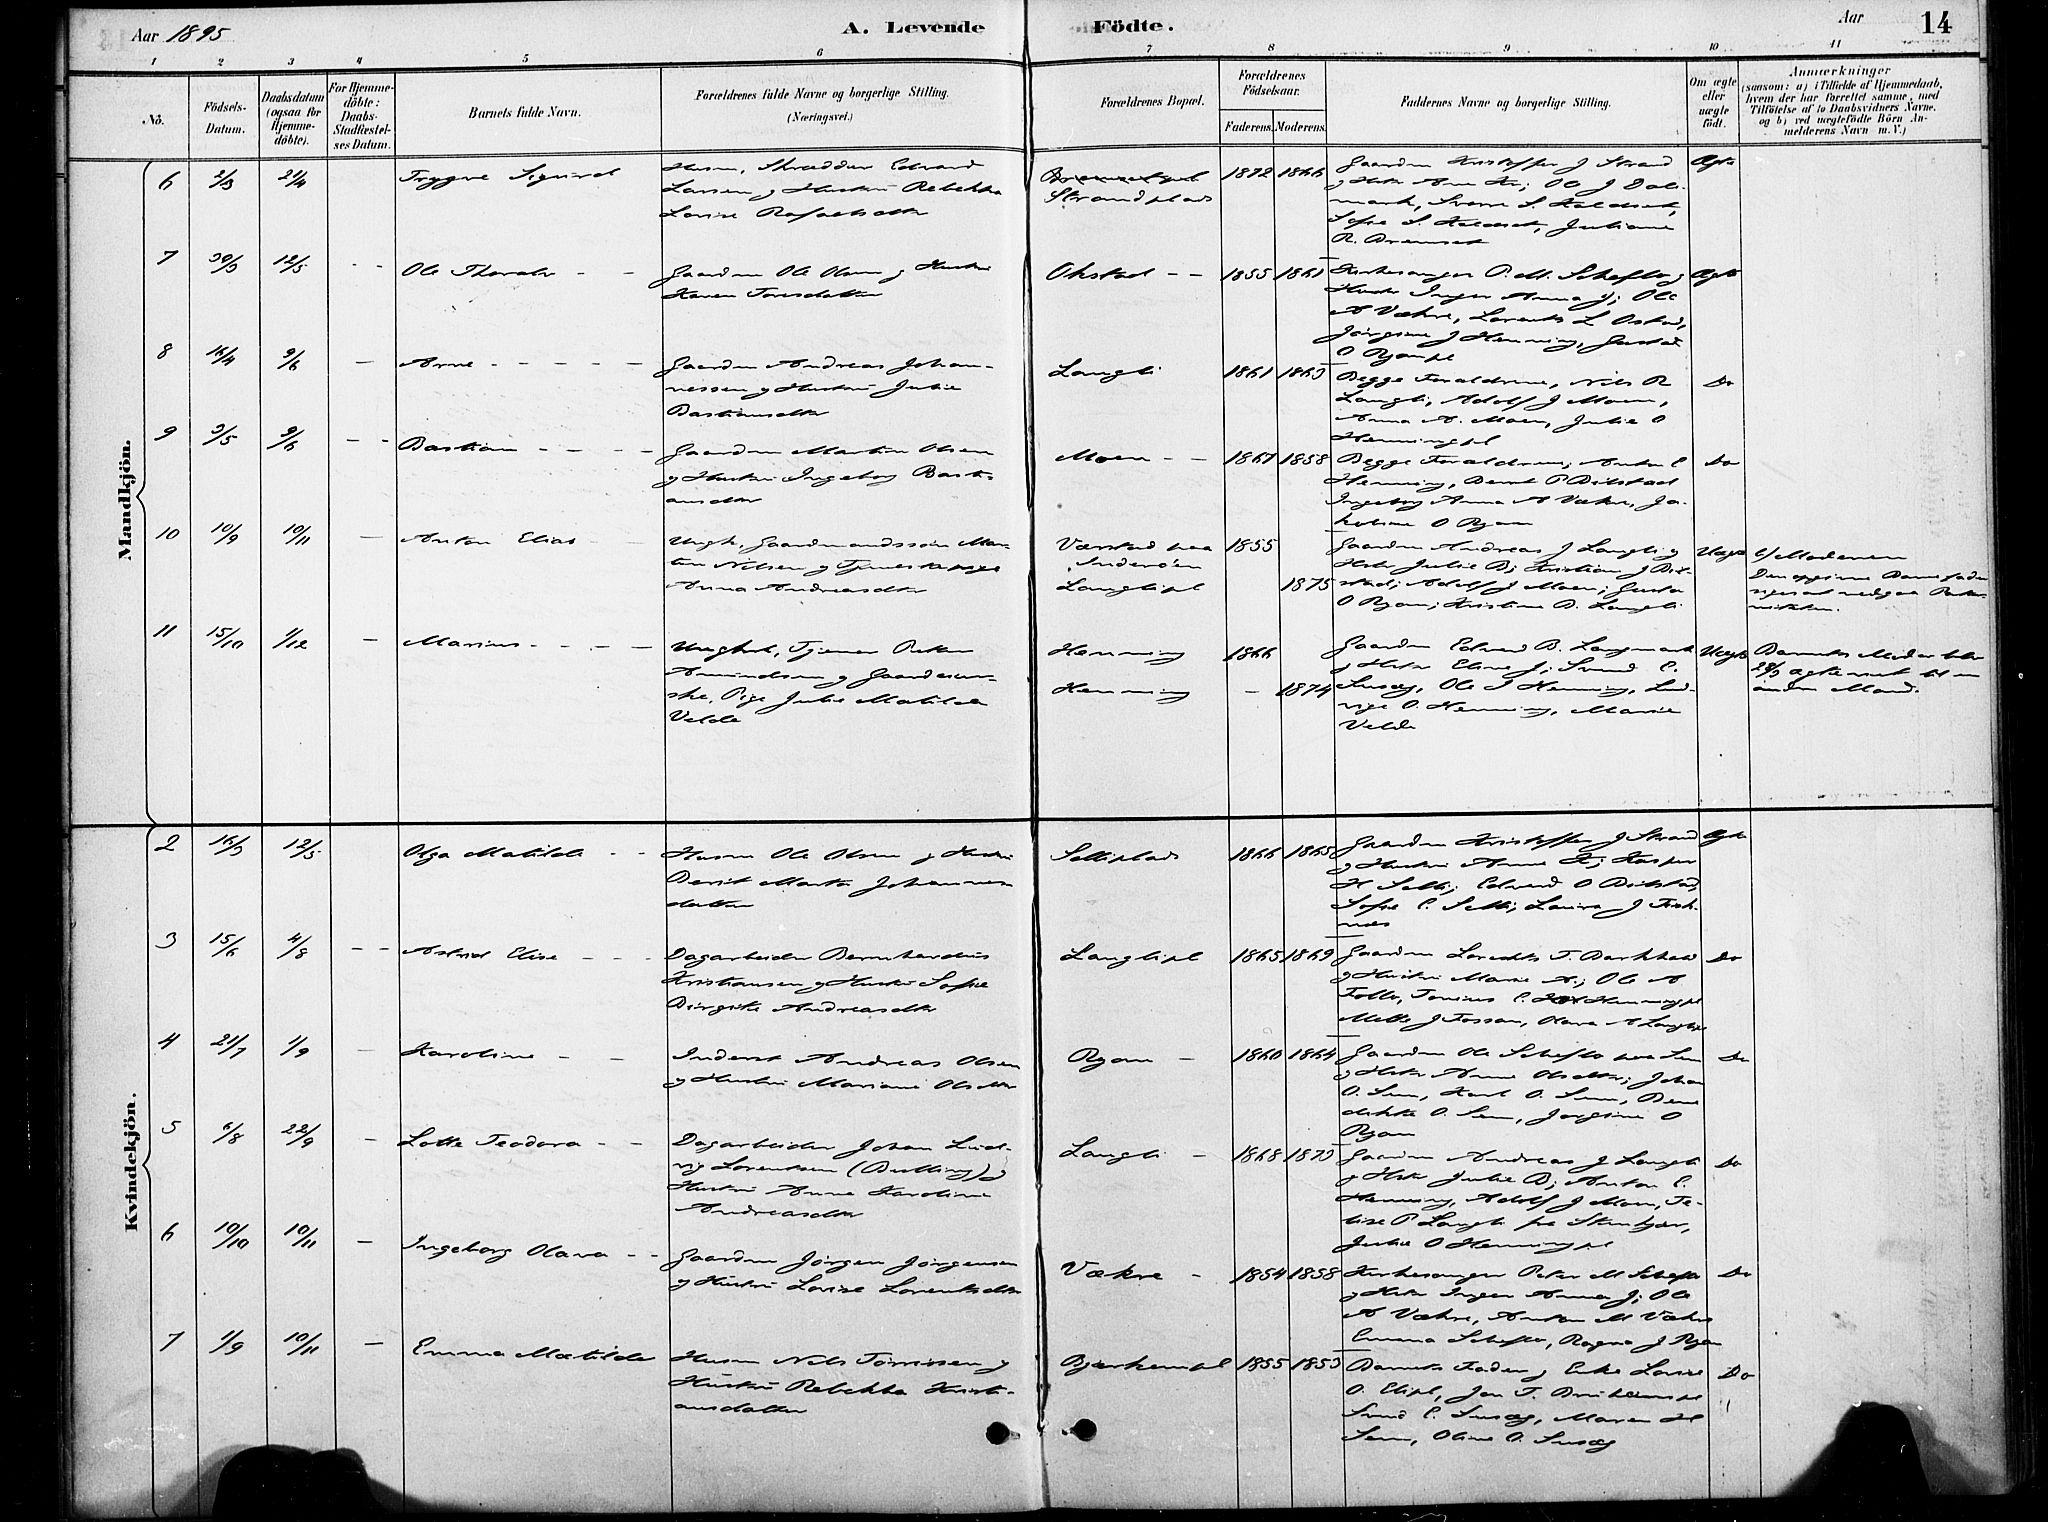 Aar 1895
A. Levende Födte.
Aar 14
1 2 3 4 5 6 7 8 9 10 11
No.
Födsels-Datum.
Daabsdatum (ogsaa for Hjemmedöbte).
For Hjemmedöbte: Daabs-Stadfæstelses Datum.
Barnets fulde Navn.
Forældrenes fulde Navne og borgerlige Stilling. (Næringsvei.)
Forældrenes Bopæl.
Forældrenes Födselsaar.
Faderens. Moderens.
Faddernes Navne og borgerlige Stilling.
Om ægte eller uægte födt.
Anmærkninger
(saasom: a) i Tilfælde af Hjemmedaab, hvem der har forrettet samme, med Tilföielse af to Daabsvidners Navne. og b) ved uægtefödte Börn Anmelderens Navn m. V.)
Mandkjön.
6 2/3 21/4 Trygve Sigurd
Husm, Skrædder Edvard
Larsen og Hustru Rebekka
Lovise Rafaelsdtr
Strandplads 1872 1866
Gaardm Kristoffer J Strand
Ægte
7 30/3 12/5 - - Ole Thoralv - -
Gaardm Ole Olsen og Hustru
Karen Toresdatter
Okstad - - 1855 1861
Kirkesanger P. M. Schefte og
Hustr Inger Anna J; Ole
A Vækre, Lorents L Okstad,
Jørgine J Henning, Gustav
O Ryanpl
Ægte
8 16/4 9/6 - Arne - - - - -
Gaardm Andreas Johan-
nessen og Hustru Julie
Bastiansdtr
Langli 1861 1863
Begge Forældrene, Nils R
Langli, Adolf J Moen,
Anna A. Moen, Julie O
Henningpl
Do
9 3/5 9/6 - - Bastian - - - -
Gaardm Martin Olsen
og Hustru Ingeborg Basti-
ansdtr
Moen - - 1861 1858
Begge Forældrene; Anton C
Henning, Bernt P Bilstad
Ingeborg Anna A Vækre, Ja-
kobine O Ryan
Do
10 10/9 10/11 - Anton Elias - -
Ungk, Gaardmandssøn Mar-
tin Nelsen og Tjenestepige
Anna Andreasdtr
Værstad paa
Inderøen
Langlipl
1855
1875
Gaardm Andreas J Langli og
Hstr Julie B; Kristian J Bil-
stad; Adolf J Moen; Gusta
O Ryan; Kristine B. Langli
Uægte
b/ Moderen
Den opgivne Barnefader
11 15/10 1/12 - Marius - - - -
Ungkarl, Tjener Peter
Amundsen og Gaardeier-
ske, Pige Julie Matilde
Velde
Henning 1866
Henning - 1874
Gaardm Edvard B. Langmark
og Hstr Eline J; Svend C.
Susæg, Ole J Henning, Lud-
vige O. Henning, Marie
Velde
Uægte
Barnets Moder blev
28/3 ægteviet til en
anden Mand.
Kvindekjön.
2 16/3 12/5 Olga Matilde - -
Husm Ole Olsen og Hustru
Berit Marta Johannes
datter
Selliplads 1866 1865
Gaardm Kristoffer J Strand
og Hustru Anne K; Kasper
H Selli; Edvard O Bilstad,
Sofie C. Selli; Laura J Fisk-
næs
Ægte
3 15/6 4/8 - - Astrid Elise - - -
Dagarbeider Bernhardus
Kristiansen og Hustru Sofie
Birgitte Andreasdtr
Langlipl 1865 1869
Gaardm Lorents T. Barkhald
og Hustru Marie A; Ole A
Follo, Tonius C. Henningpl
Mette J Fossan, Olava A Langli
Do
4 21/7 1/9 - Karoline - -
Inderst Andreas Olsen
og Hustru Mariane Olsdtr
Ryan - 1860 1864
Gaardm Ole Schefte paa Sem
og Hstr Anne Olsdtr; Johan
O. Sem, Karl O. Sem, Bene
dikte O. Sem, Jørgine O
Ryan
Do
5 6/8 22/9 - Lotte Teodora - -
Dagarbeider Johan Lud-
vig Lorentsen (Bulling) og
Hustru Anne Karoline
Andreasdtr
Langli - 1868 1873
Gaardm Andreas J Langli
og Hstr Julie B; Anton C.
Henning, Adolf J Moen, Te-
lise P Langli paa Stenkjær,
Julie O Henningpl
Do
6 10/10 10/11 - Ingeborg Olava - -
Gaardm Jørgen Jørgensen
og Hustru Lovise Lorentsdtr
Vækre - 1854 1858
Kirkesanger Peter M Schefte
og Hstr Inger Anna J; Ole
A Vækre, Anton M Vækre
Emma Schefte, Ragna J Ryan
Do
7 1/9 10/11 - Emma Matilde
Husm Nels Tørrissen og
Hustru Rebekka Kristi-
ansdatter
Bjerkempl 1855 1853
Barnets Fader og Enke Lovise
O. Elipl, Jon T.
Svend C. Susæg, Maren H
Sem, Oline O. Susæg
Do